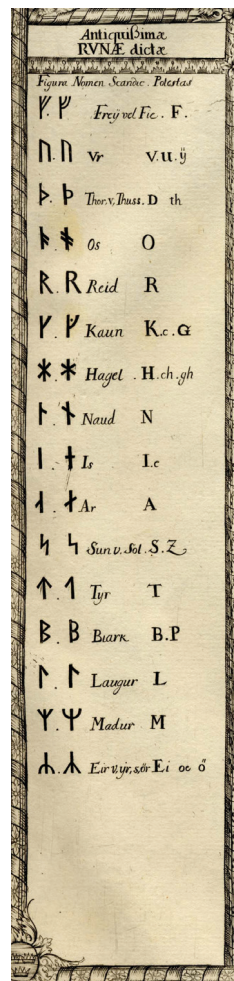 Antiquißimæ
RVNÆ dictæ
Figura Nomen Scandic. Potestas
ᚠ. ᚠ Freÿ vel Fie. F.
ᚢ. ᚢ Vr V. u. ÿ
ᚦ. ᚦ Thor. v, Thuss. D th
ᚬ. ᚯ Os O
ᚱ. ᚱ Reid R
ᚴ. ᚴ Kaun K. c. G
ᚼ. ᚼ Hagel . H. ch. gh
ᚿ. ᚾ Naud N
ᛁ. ᛂ Is I. e
ᛆ. ᛅ Ar A
ᛋ. ᛋ Sun v. Sol. S. Z
ᛏ. ᛐ Tyr T
ᛒ. ᛒ Biark B. P
ᛚ. ᛚ Laugur L
ᛘ. ᛘ Madur M
ᛦ. ᛦ Eir v, ÿr, s, ör Ei oe ő